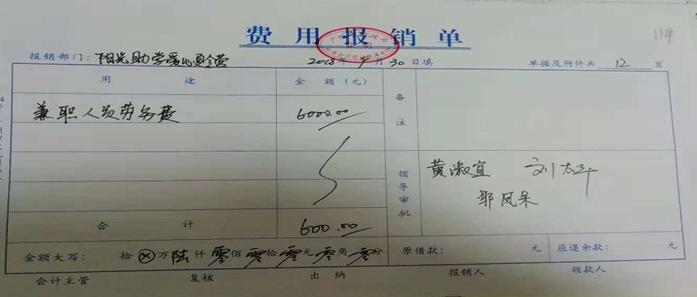 费用报销单
报销部门：阳光助学爱心影营 2018年9月30日填 单据及附件共 12 页
用途 金额（元） 备注
兼职人员劳务费 6000.00
领导审批 黄淑宜 刘
合计 600.00
金额大写：拾⊗万陆仟零佰零拾零元零角零分 原借款： 元 应退余款： 元
会计主管 复核 出纳 报销人 领款人